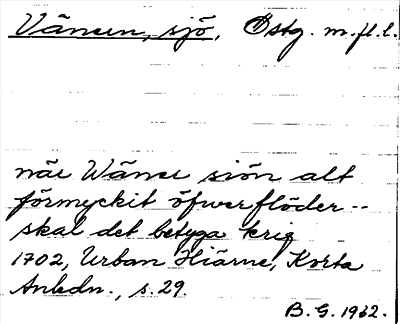 Vänern, sjö, Östg. m.fl.l.
när Wäner siön alt
förmyckit öfwerflöder --
skal det betyga krig
1702, Urban Hiärne, Korta
Anledn., s. 29.
B. G. 1962.